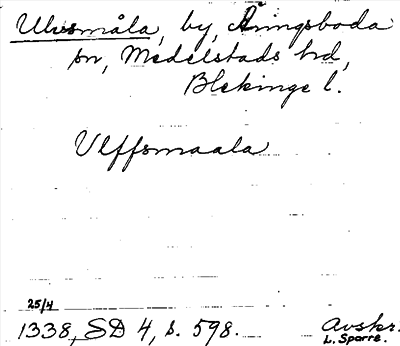 Ulvsmåla, by, Åringsboda
sn, Medelstads hd,
Blekinge l.
Vlffsmaala
25/4
1338, SD 4, s. 598.
Avskr.
L. Sparre.